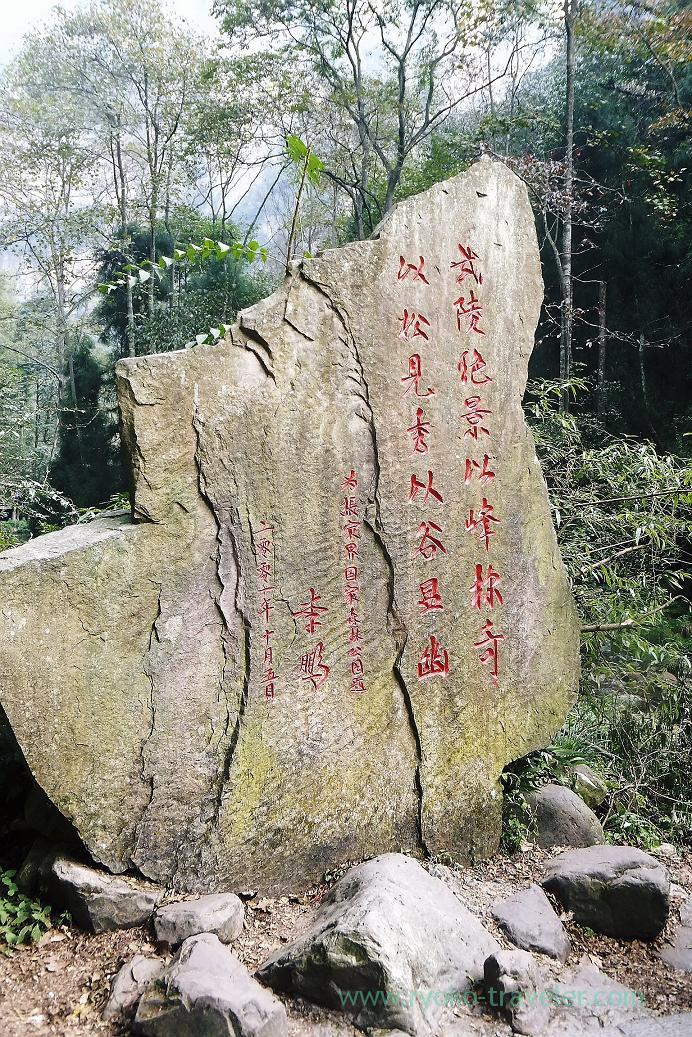 武陵绝景以峰称奇
以松见秀以谷显幽
为張家界国家森林公园题
李鹏
二零零一年十月五日
www.ryoko-traveler.com